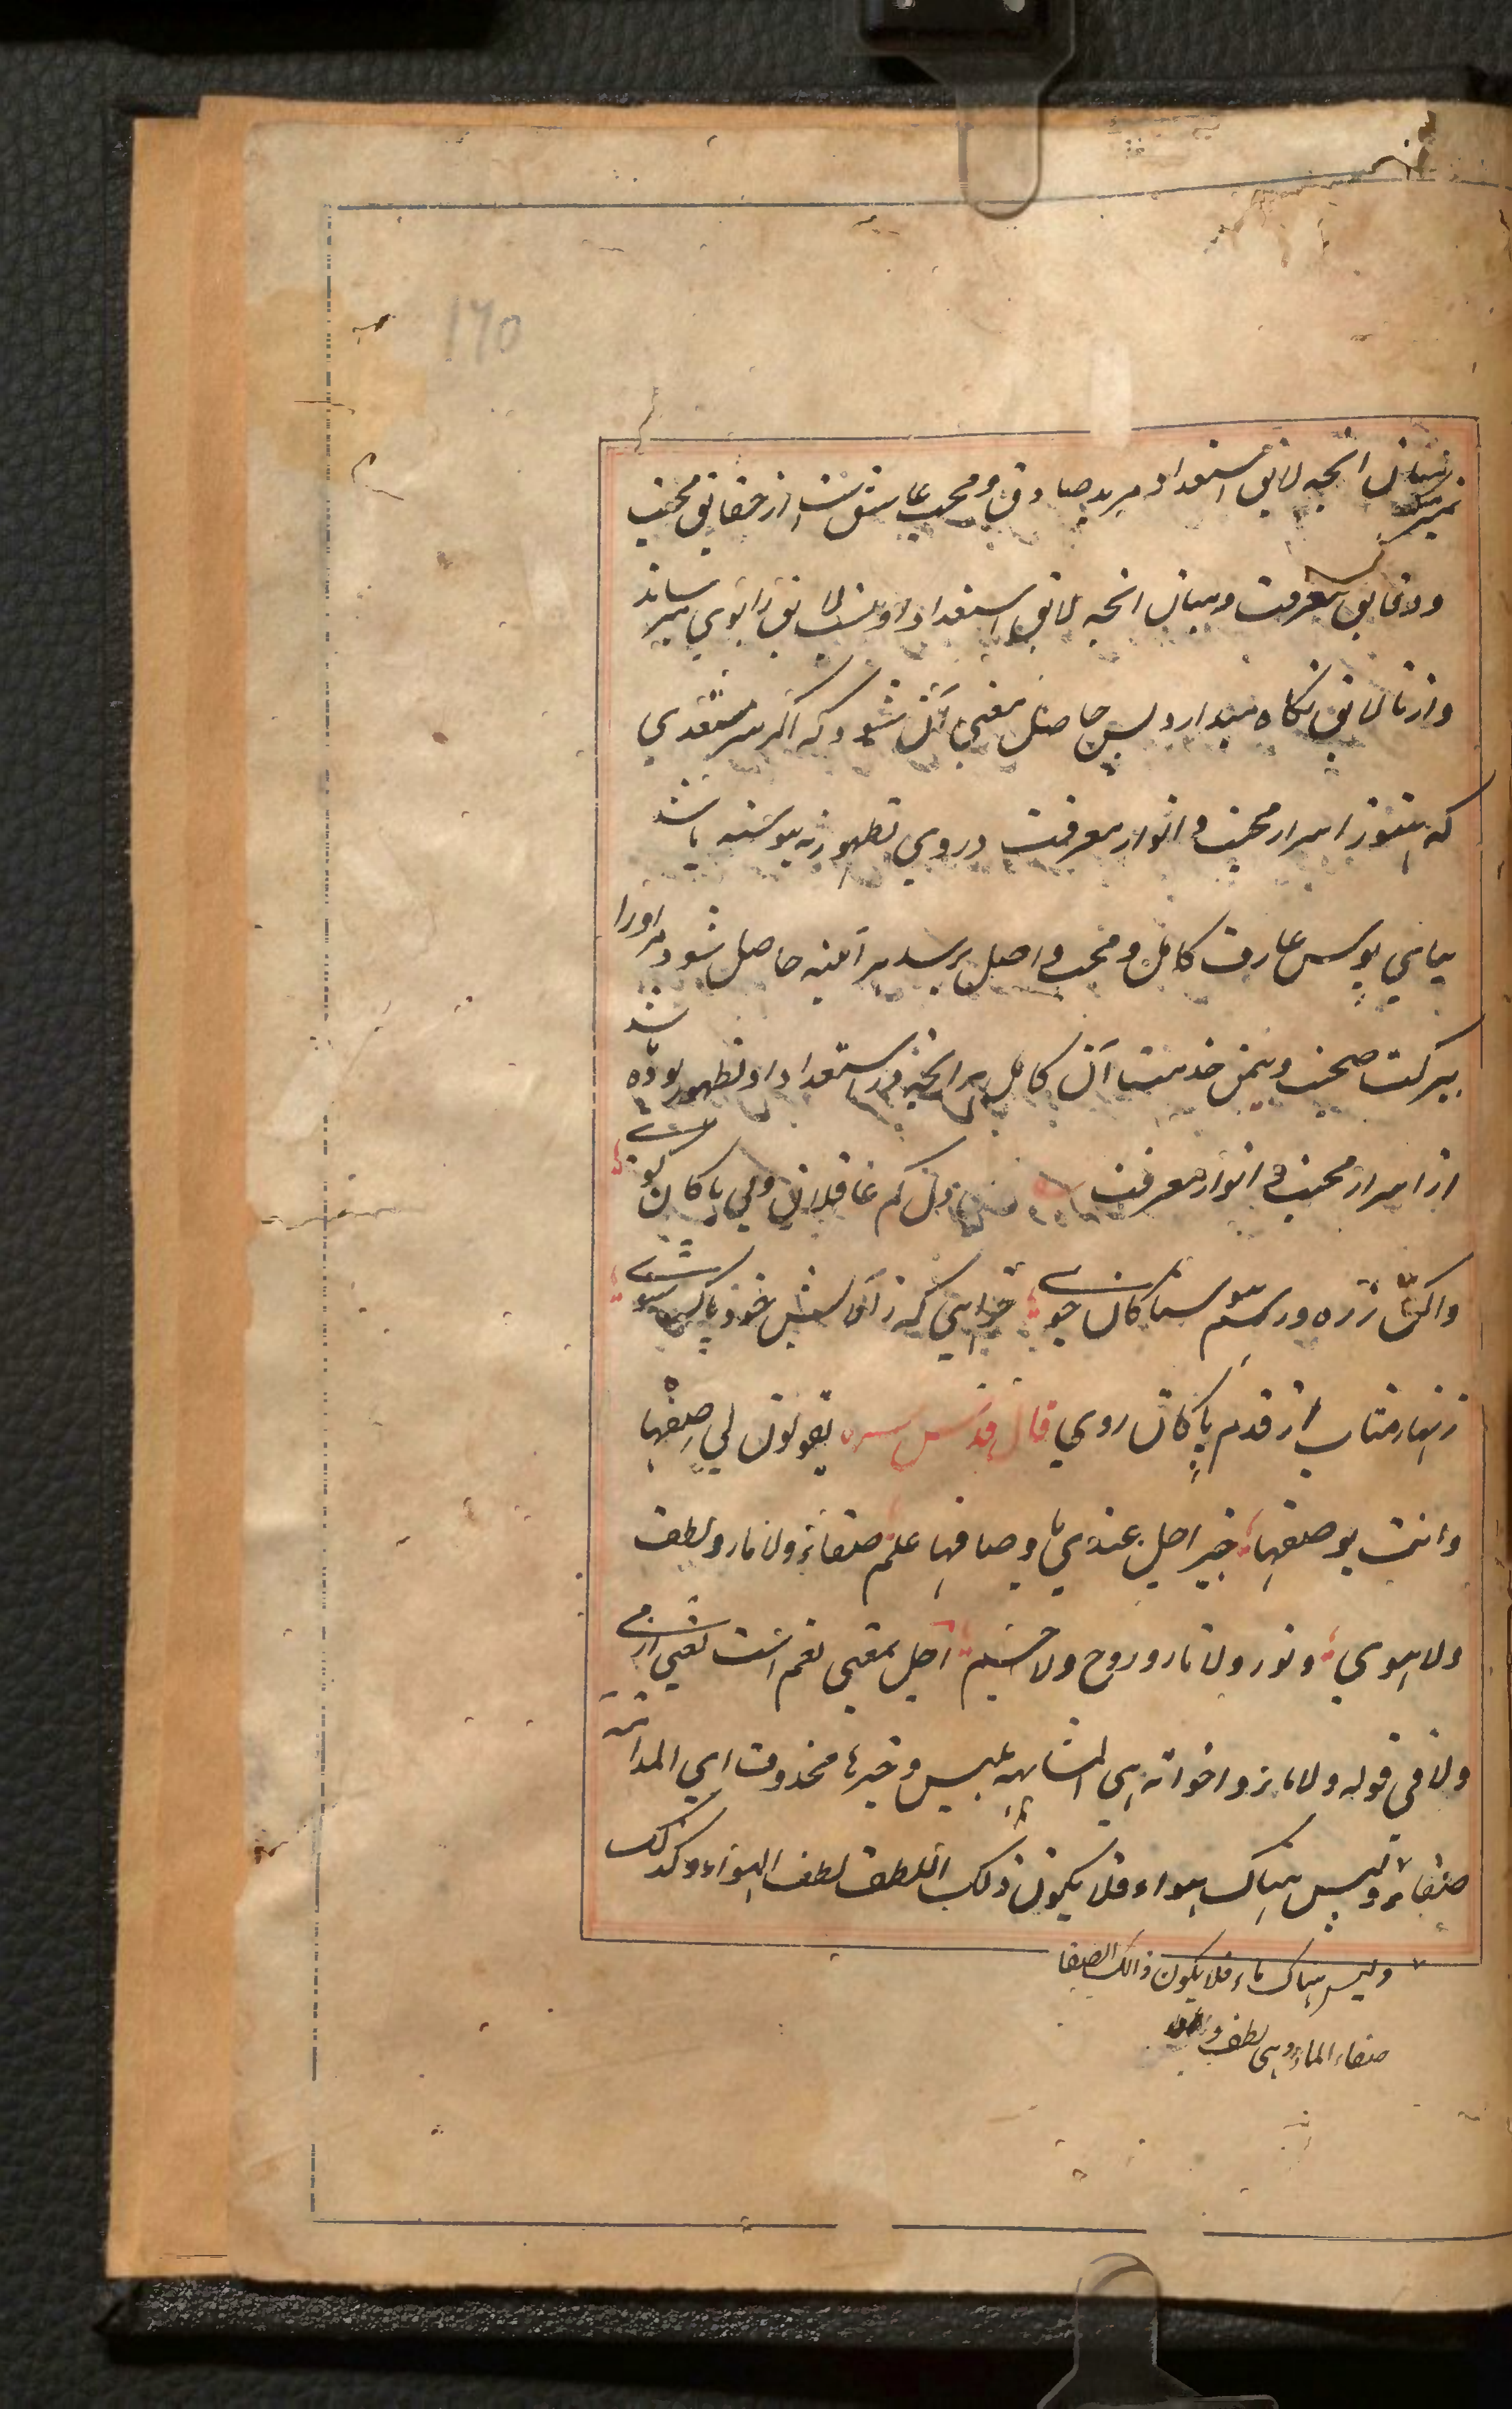 170
میان آنچه لایق استعداد مرید صادق و محب عاشق است از حقایق محبت
ودقایق معرفت ومیان آنچه لایق استعداد او نیست لایق را بوی میرساند
واز نالایق نگاه میدارد پس حاصل معنی آن شود که اگر مستعدی
که هنوز اسرار محبت و انوار معرفت در وی بظهور نه پیوسته باشد
بپای بوس عارف کامل و محب واصل برسد هر آینه حاصل شود مر اورا
ببرکت صحبت ویمن خدمت آن کامل هر آنچه در استعداد او بظهور بوده باشد
از اسرار محبت و انوار معرفت کم غافلان ولی پاکان کوی
واکن زره ورسم سماکان جوی خواهی که ز آلایش خود پاک شوی
زنهار متاب از قدم پاکان روی قال قدس سره یقولون لی صفها
وانت بوصفها خبیر اجل عندی باوصافها علم صفاء ولا ماء ولطف
ولا هوی ونور ولا نار وروح ولا جسم اجل بمعنی نعم است یعنی آری
ولا فی قوله ولا ماء واخواته هی المشابهة بلیس وخبرها محذوف ای المدامة
صفاء ولیس هناک هواء فلا یکون ذلک اللطف لطف الهواء وکذلک
ولیس هناک ماء فلا یکون ذالک الصفا
صفاء الماء وهی لطف